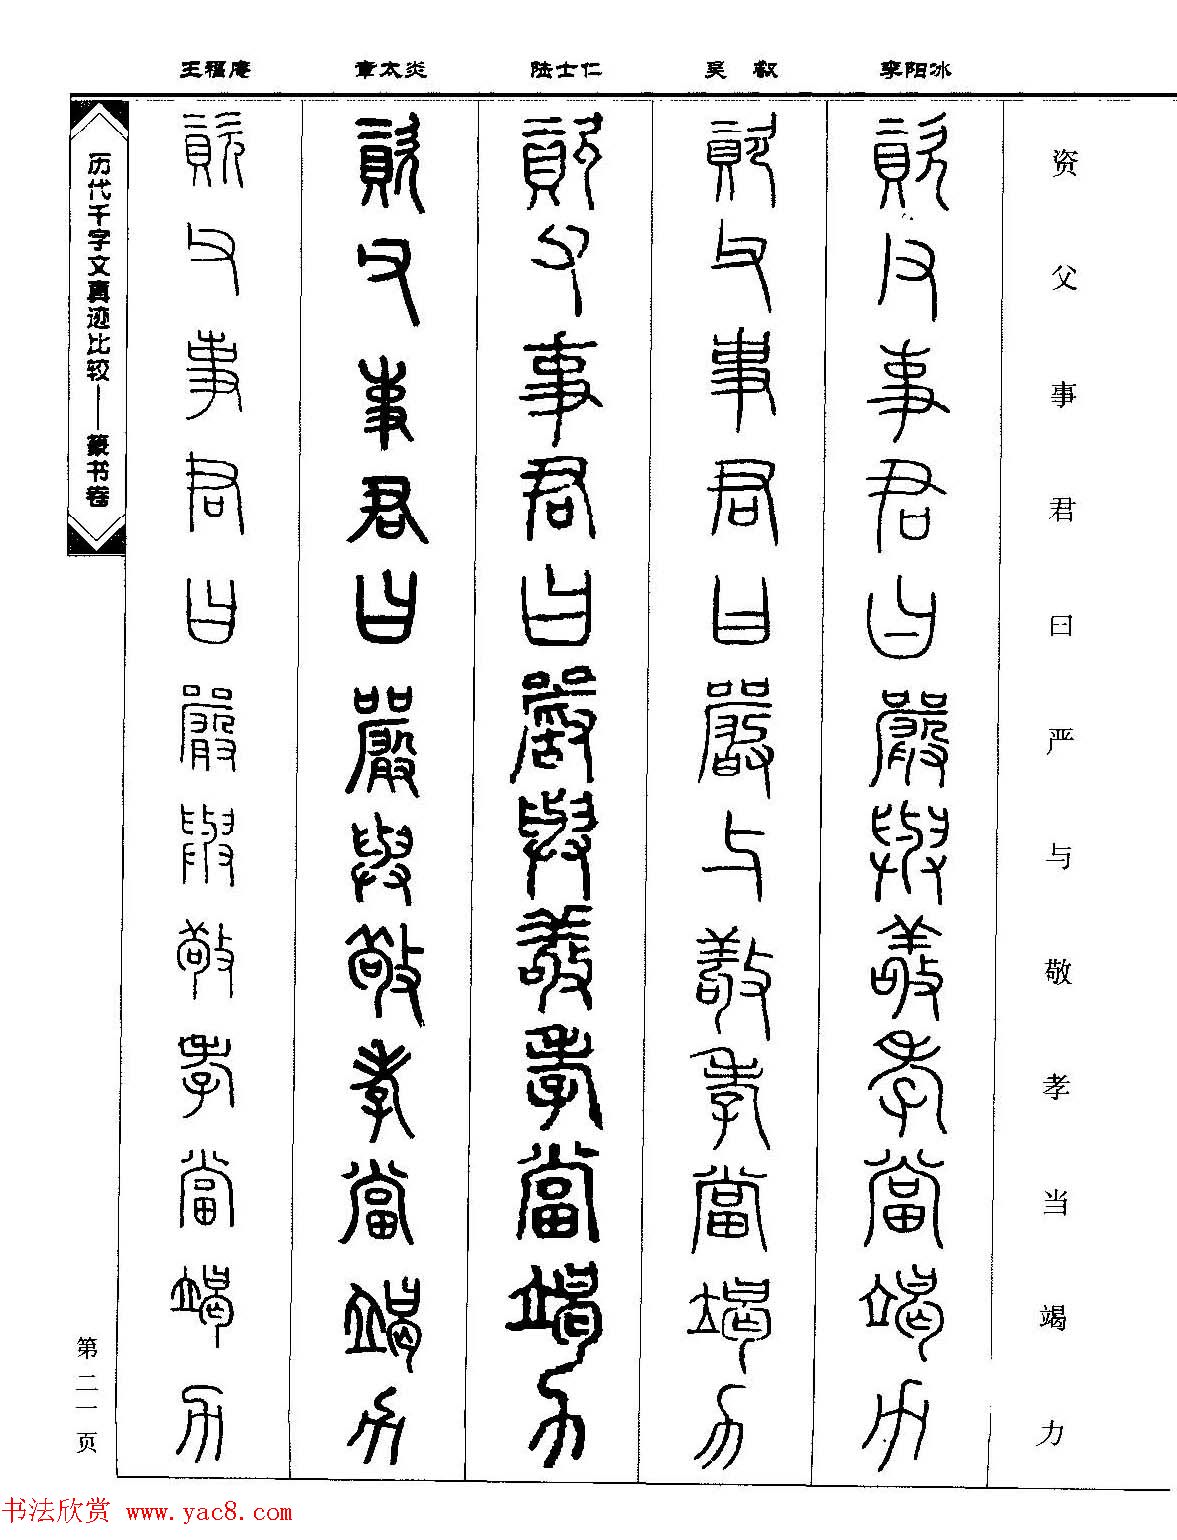 王福庵 章太炎 陆士仁 吴叡 李阳冰
资父事君曰严与敬孝当竭力
資父事君曰嚴與敬孝當竭力
資父事君曰嚴与敬孝當竭力
資父事君曰嚴與敬孝當竭力
資父事君曰嚴與敬孝當竭力
資父事君曰嚴與敬孝當竭力
历代千字文真迹比较——篆书卷
第二一页
书法欣赏 www.yac8.com